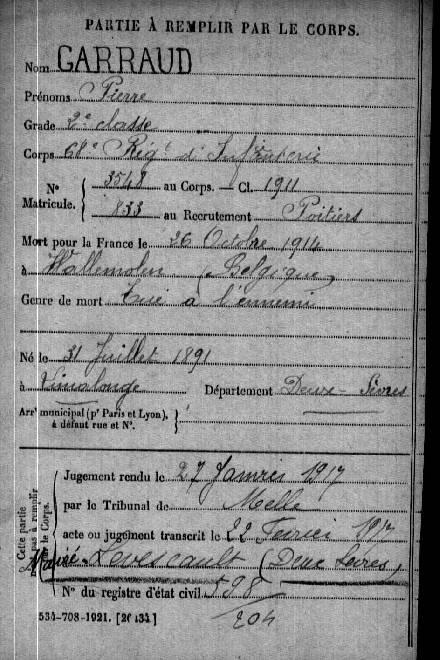 PARTIE À REMPLIR PAR LE CORPS.
Nom GARRAUD
Prénoms Pierre
Grade 2e classe
Corps 68e Régt d'Infanterie
No Matricule. 3548 au Corps. — Cl. 1911
833 au Recrutement Poitiers
Mort pour la France le 26 Octobre 1914
à Wallemolen (Belgique)
Genre de mort Tué à l'ennemi
Né le 31 Juillet 1891
à Limalonge Département Deux-Sèvres
Arrt municipal (pr Paris et Lyon), à défaut rue et No.
Cette partie n'est pas à remplir par le Corps.
Jugement rendu le 27 Janvier 1917
par le Tribunal de Melle
acte ou jugement transcrit le 22 Février 1917
(Deux Sèvres)
No du registre d'état civil 598/204
534-708-1921. [26434]